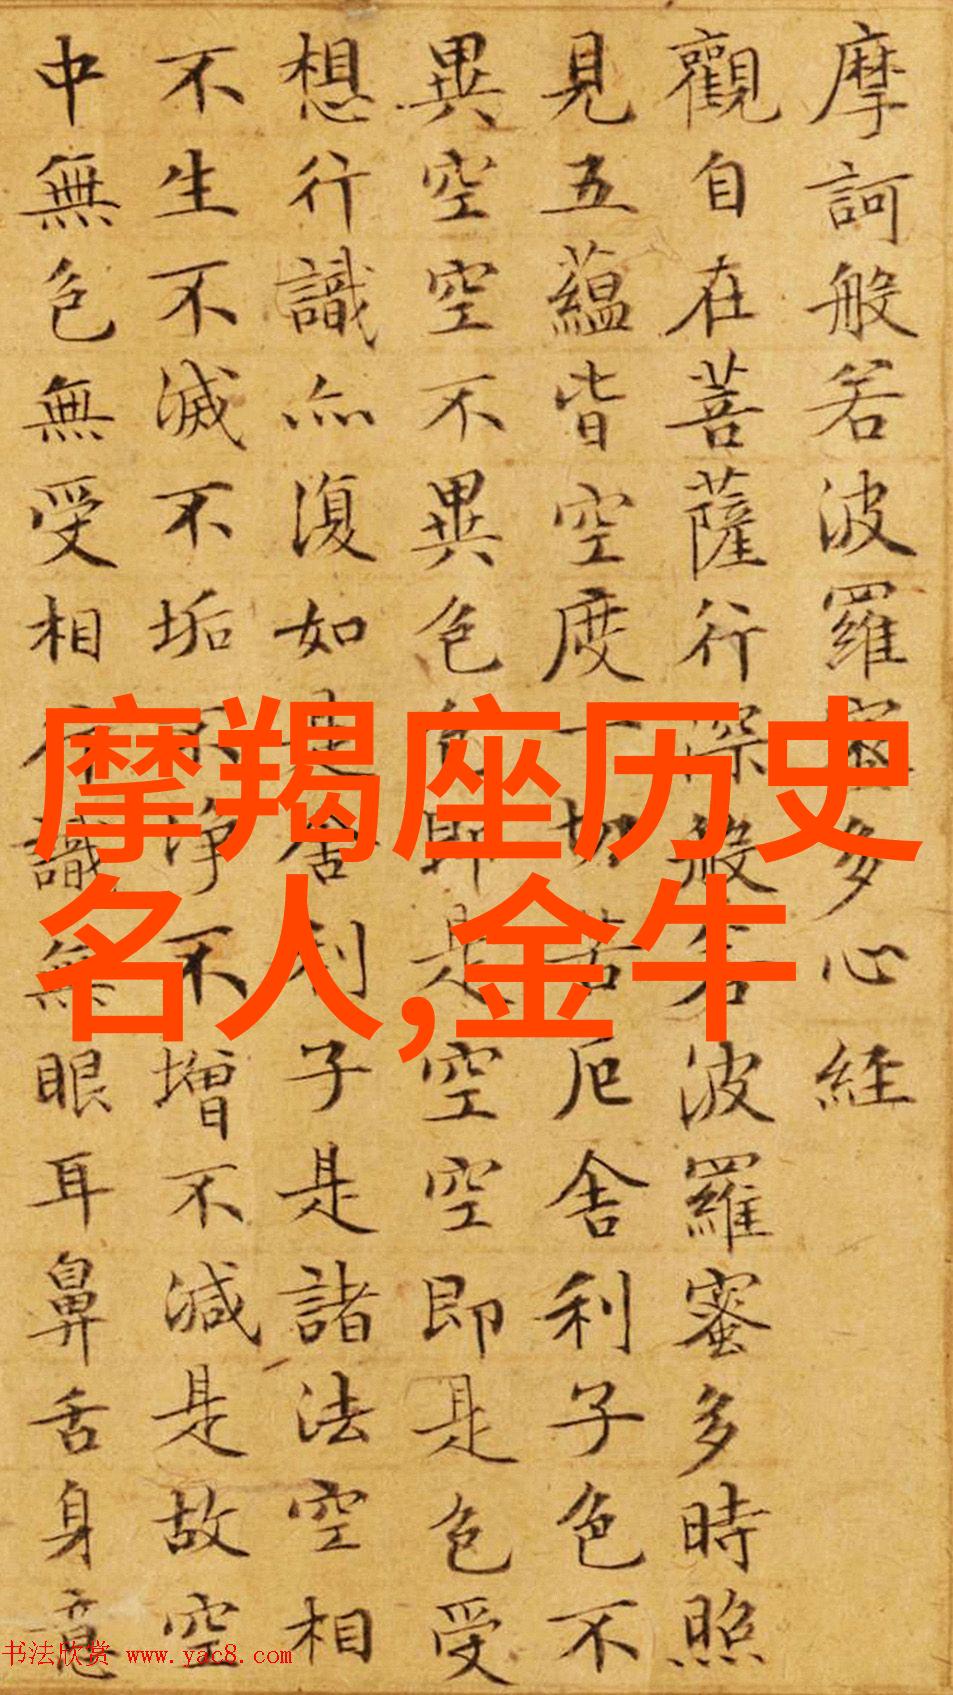 摩訶般若波羅多心經
觀自在菩薩行深般若波羅蜜多時照
見五蘊皆空度一切苦厄舍利子色不
異空空不異色色即是空空即是色受
想行識亦復如是舍利子是諸法空相
不生不滅不垢不净不增不減是故空
中無色無受相行識無眼耳鼻舌身意
摩羯座历史
名人,金牛
书法欣赏 www.yac8.com